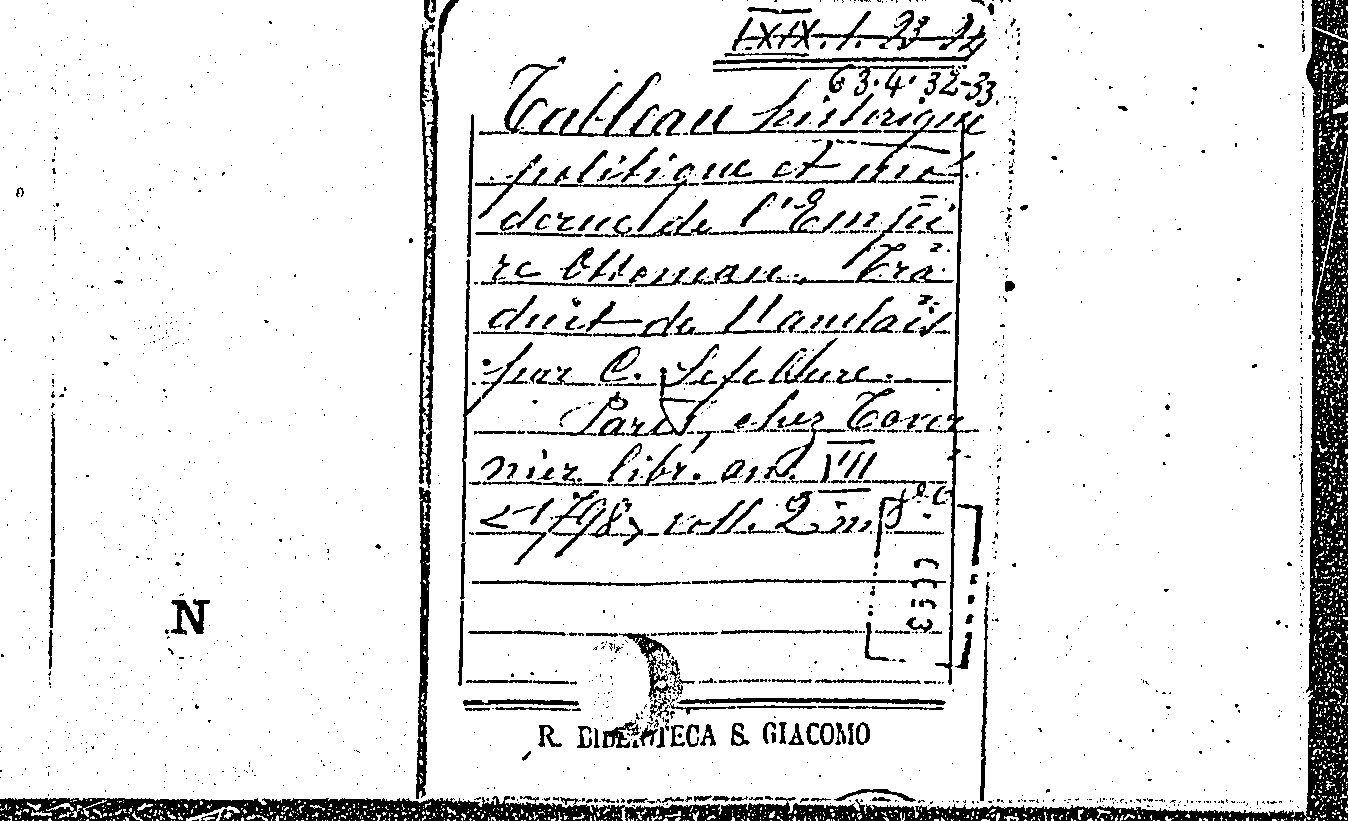 LXIX. 1. 23-24
63.4.32-33
Tableau historique
politique et mo-
derne de l'Empi-
re Ottoman. Tra-
duit de l'anglais
par C. Lefebvre.
Paris, chez Tavernier
nier libr. an. VII
<1798> voll. 2 in 8º
N
R. BIBLIOTECA S. GIACOMO